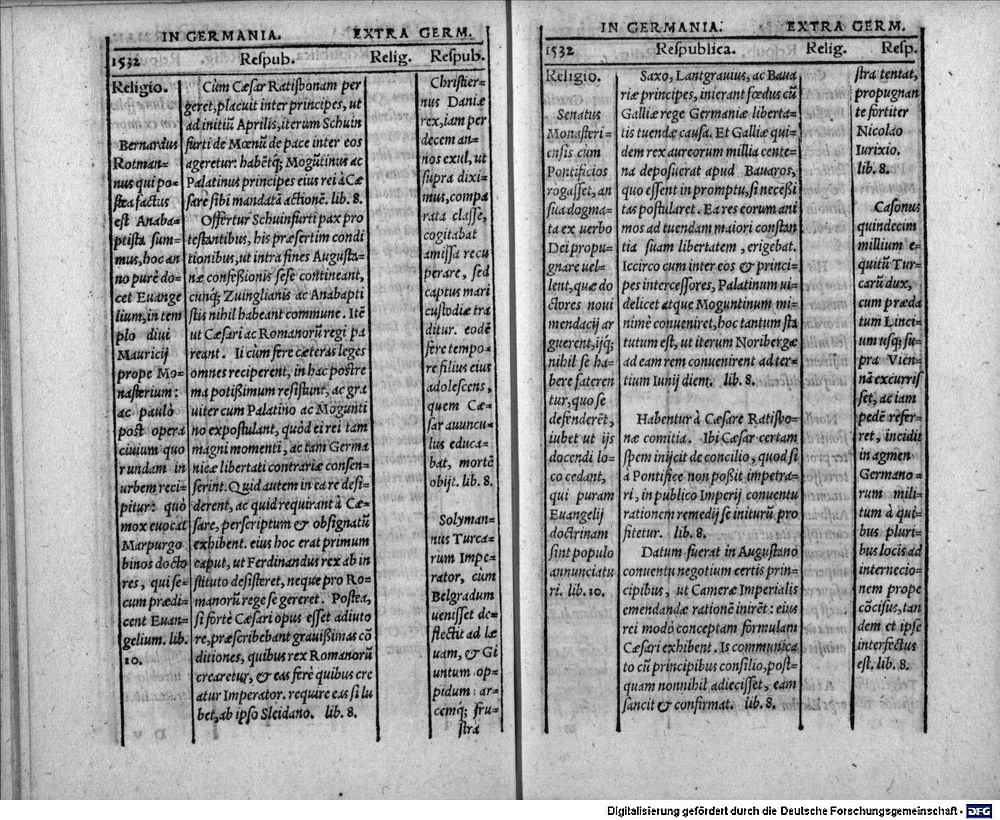 IN GERMANIA. EXTRA GERM.
1532 Respub. Relig. Respub.
Religio.
Bernardus
Rotman=
nus qui po=
stea factus
est Anaba=
ptista sum=
mus, hoc an
no purè do=
cet Euange
lium, in tem
plo diui
Mauricij
prope Mo=
nasterium:
ac paulò
pòst opera
ciuium quo
rundam in
urbem reci=
pitur: quò
mox euocat
Marpurgo
binos docto
res, qui se=
cum prædi=
cent Euan=
gelium. lib.
10.
Cùm Cæsar Ratisbonam per
geret, placuit inter principes, ut
ad initiũ Aprilis, iterum Schuin
furti de Mœnũ de pace inter eos
ageretur: habẽtq; Mogũtinus ac
Palatinus principes eius rei à Cæ
sare sibi mandatã actionẽ. lib. 8.
Offertur Schuinfurti pax pro
testantibus, his præsertim condi
tionibus, ut intra fines Augusta=
næ confeßionis sese contineant,
cunq; Zuinglianis ac Anabapti
stis nihil habeant commune. Itẽ
ut Cæsari ac Romanorũ regi pa
reant. Ii cùm fere cæteras leges
omnes reciperent, in hac postre
ma potißimum resistunt, ac gra
uiter cum Palatino ac Mogunti
no expostulant, quòd ei rei tam
magni momenti, ac tam Germa
nicæ libertati contrariæ consen=
serint. Quid autem in ea re desi=
derent, ac quid requirant à Cæ=
sare, perscriptum & obsignatũ
exhibent. eius hoc erat primum
caput, ut Ferdinandus rex ab in
stituto desisteret, neque pro Ro=
manorũ rege se gereret. Postea,
si fortè Cæsari opus esset adiuto
re, præscribebant grauißimas cõ
ditiones, quibus rex Romanorũ
crearetur, & eas ferè quibus cre
atur Imperator. require eas si lu
bet, ab ipso Sleidano. lib. 8.
Christier=
nus Daniæ
rex, iam per
decem an=
nos exul, ut
supra dixi=
mus, compa
rata classe,
cogitabat
amissa recu
perare, sed
captus mari
custodiæ tra
ditur. eodẽ
fere tempo=
re filius eius
adolescens,
quem Cæ=
sar auuncu=
lus educa=
bat, mortẽ
obijt. lib. 8.
Solyman=
nus Turca=
rum Impe=
rator, cum
Belgradum
uenisset de=
flectit ad læ
uam, & Gi
untum op=
pidum ar=
cemq; fru=
stra
IN GERMANIA. EXTRA GERM.
1532 Respublica. Relig. Resp.
Religio.
Senatus
Monasteri=
ensis cum
Pontificios
rogasset, an
sua dogma=
ta ex uerbo
Dei propu=
gnare uel=
lent, quæ do
ctores noui
mendacij ar
guerent, ijq;
nihil se ha=
bere fateren
tur, quo se
defenderẽt,
iubet ut ijs
docendi lo=
co cedant,
qui puram
Euangelij
doctrinam
sint populo
annunciatu
ri. lib. 10.
Saxo, Lantgrauius, ac Baua
riæ principes, inierant fœdus cũ
Galliæ rege Germaniæ liberta=
tis tuendæ causa. Et Galliæ qui=
dem rex aureorum millia cente=
na deposuerat apud Bauaros,
quo essent in promptu, si neceßi
tas postularet. Ea res eorum ani
mos ad tuendam maiori constan
tia suam libertatem, erigebat.
Iccirco cum inter eos & princi=
pes intercessores, Palatinum ui=
delicet atque Moguntinum mi=
nimè conueniret, hoc tantum sta
tutum est, ut iterum Noribergæ
ad eam rem conuenirent ad ter=
tium Iunij diem. lib. 8.
Habentur à Cæsare Ratisbo=
næ comitia. Ibi Cæsar certam
spem inijcit de concilio, quod si
à Pontifice non poßit impetra=
ri, in publico Imperij conuentu
rationem remedij se initurũ pro
fitetur. lib. 8.
Datum fuerat in Augustano
conuentu negotium certis prin=
cipibus, ut Cameræ Imperialis
emendandæ rationẽ inirẽt: eius
rei modò conceptam formulam
Cæsari exhibent. Is communica
to cũ principibus consilio, post=
quam nonnihil adiecisset, eam
sancit & confirmat. lib. 8.
stra tentat,
propugnan
te fortiter
Nicolao
Iurixio.
lib. 8.
Casonus
quindecim
millium e=
quitũ Tur=
carũ dux,
cum præda
tum Linci=
um usq; su=
pra Vien=
nã excurris
set, ac iam
pedẽ refer=
ret, incidit
in agmen
Germano=
rum mili=
tum à qui=
bus pluri=
bus locis ad
internecio=
nem prope
cõcisus, tan
dem et ipse
interfectus
est. lib. 8.
Digitalisierung gefördert durch die Deutsche Forschungsgemeinschaft - DFG